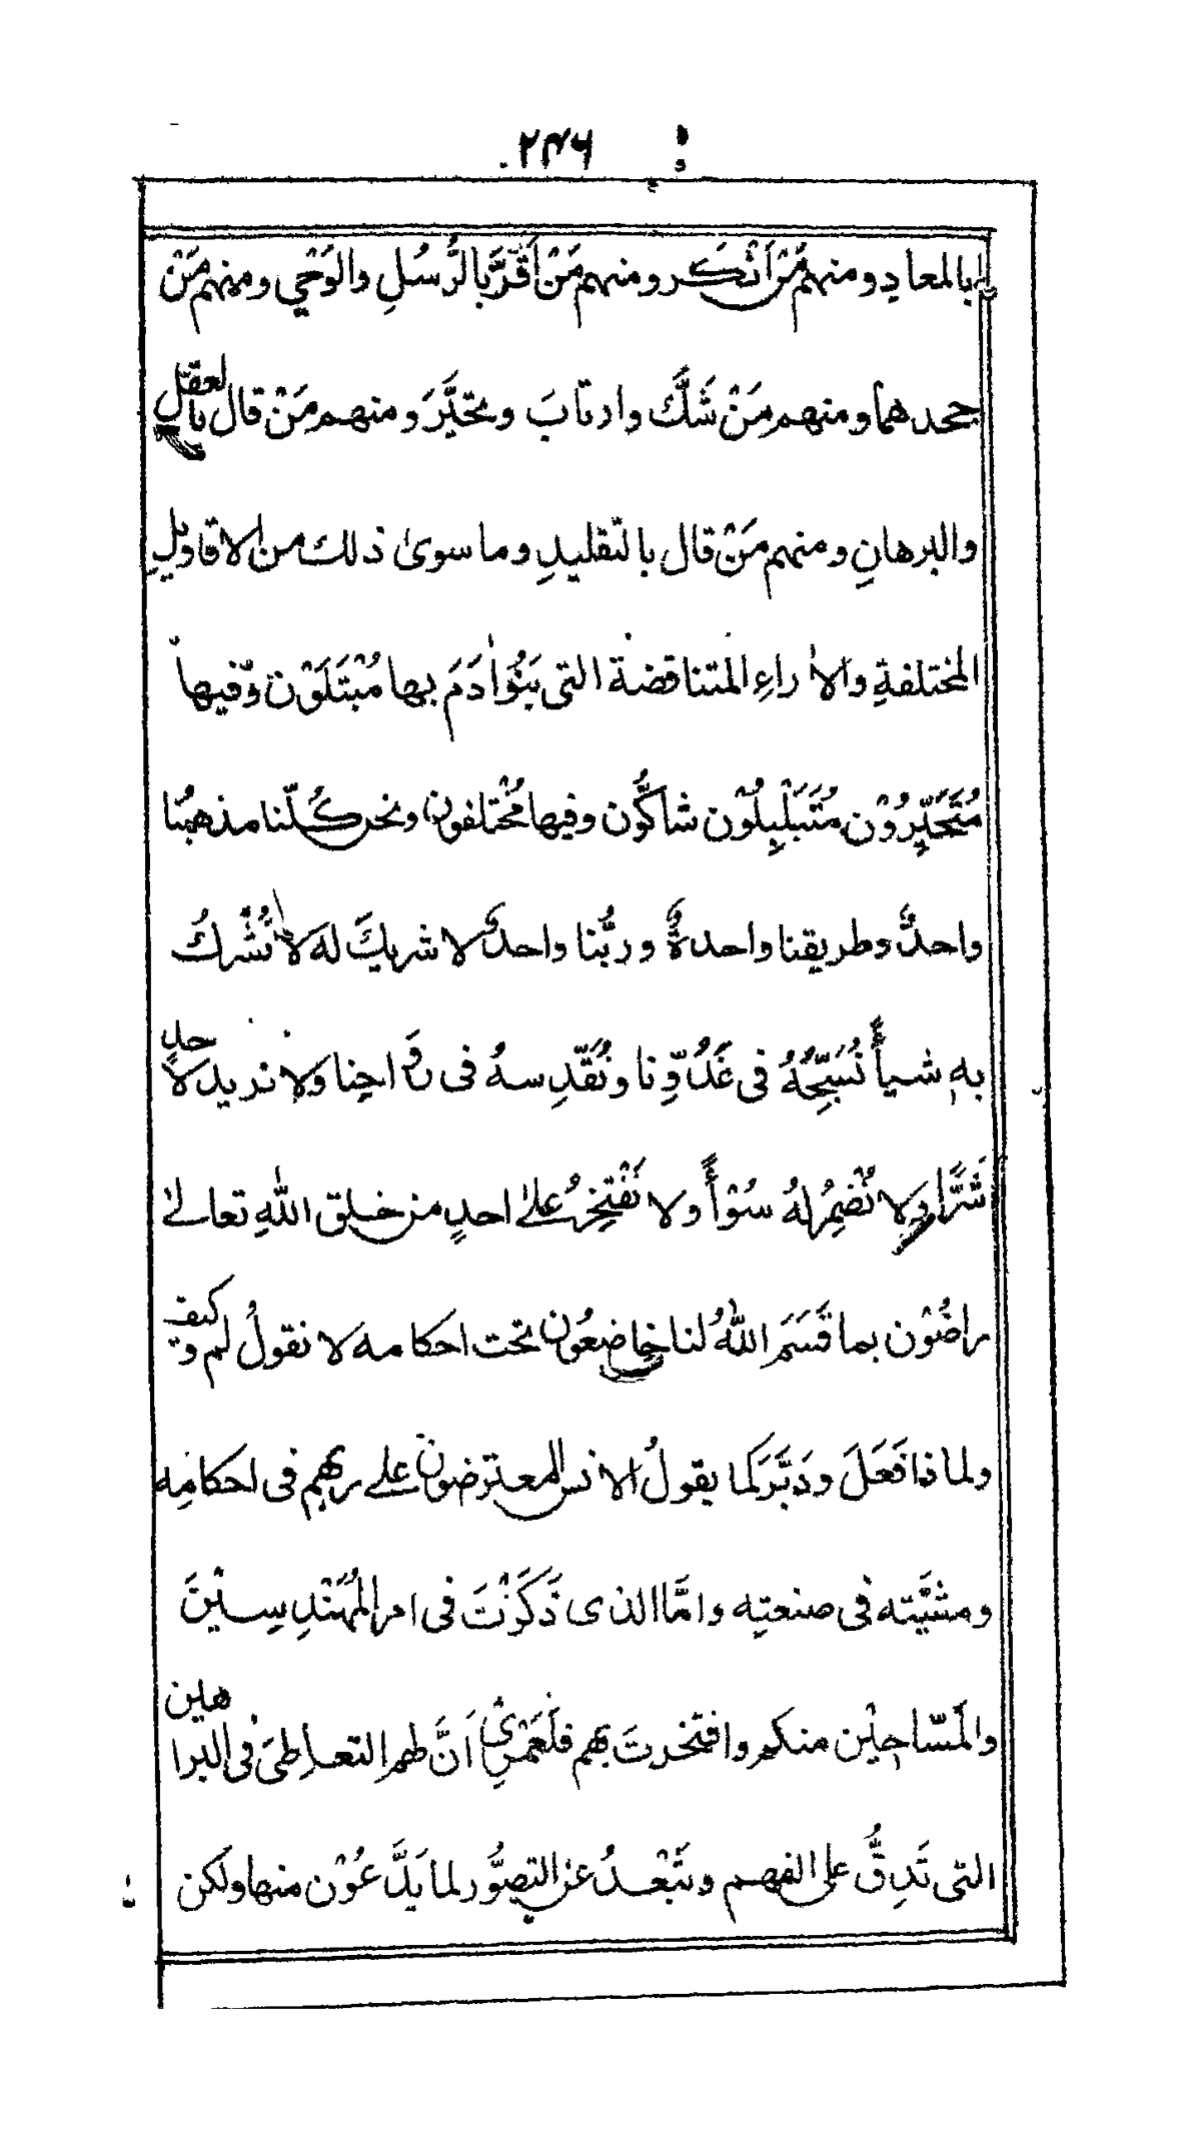 ۲۴۶
بالمعادِ ومنهم مَنْ اَنْكَر ومنهم مَنْ اَقَرَّ بالرُّسُلِ والوَحْيِ ومنهم مَنْ
جحدهما ومنهم مَنْ شَكَّ وارتابَ وتحَيَّرَ ومنهم مَنْ قال بالعقلِ
والبرهانِ ومنهم مَنْ قال بالتقليدِ وما سوىٰ ذلك من الاقاويلِ
المختلفةِ والاٰراءِ المتناقضة التى بَنُوْاٰدَمَ بها مُبْتَلَوْنَ وفيها
مُتَحَيِّرُوْن مُتَبَلْبِلُوْن شاكُّون وفيها مُخْتلفون ونحن كُلّنا مذهبُنا
واحدٌ وطريقنا واحدةٌ وربُّنا واحدٌ لا شريكَ له لا نُشْرِكُ
بهٖ شيأً نُسَبِّحُهُ فى غَدُوِّنا ونُقَدِّسهُ فى رَوَاحِنا ولا نريد لاَحدٍ
شَرًّا ولا نُضْمِرُ لهُ سُوْأً ولا نَفْتَخِرُ علىٰ احدٍ من خلق اللهِ تعالىٰ
راضُوْن بما قَسَمَ اللهُ لنا خاضعُون تحت احكامه لا نقولُ لم وكيف
ولماذا فَعَلَ ودَبَّرَ كما يقولُ الانس المعترضون على ربهم فى احكامِه
ومشيَّته فى صنعتِه وامَّا الذى ذَكَرْتَ فى امر المُهَنْدِسِيْنَ
والمَسّاحِيْن منكم وافتخرتَ بهم فلَعَمْرِىْ اَنَّ لهم التعاطِىَ فى البراهين
التى تَدِقُّ على الفهم وتَبْعُدُ عن التصوُّر لما يَدَّعُوْن منها ولكن